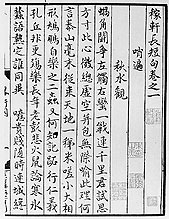 稼軒長短句卷之一
哨遍
秋水觀
蝸角鬬爭左觸右蠻一戰連千里君試思
方寸此心微總虛空并包無際喻此理何
言泰山毫末從來天地一稊米嗟小大相
形鳩鵬自樂之二蟲又何知記跖行仁義
孔丘非更殤樂長年老彭悲火鼠論寒冰
蠶語熱定誰同異 噫貴賤隨時連城纔